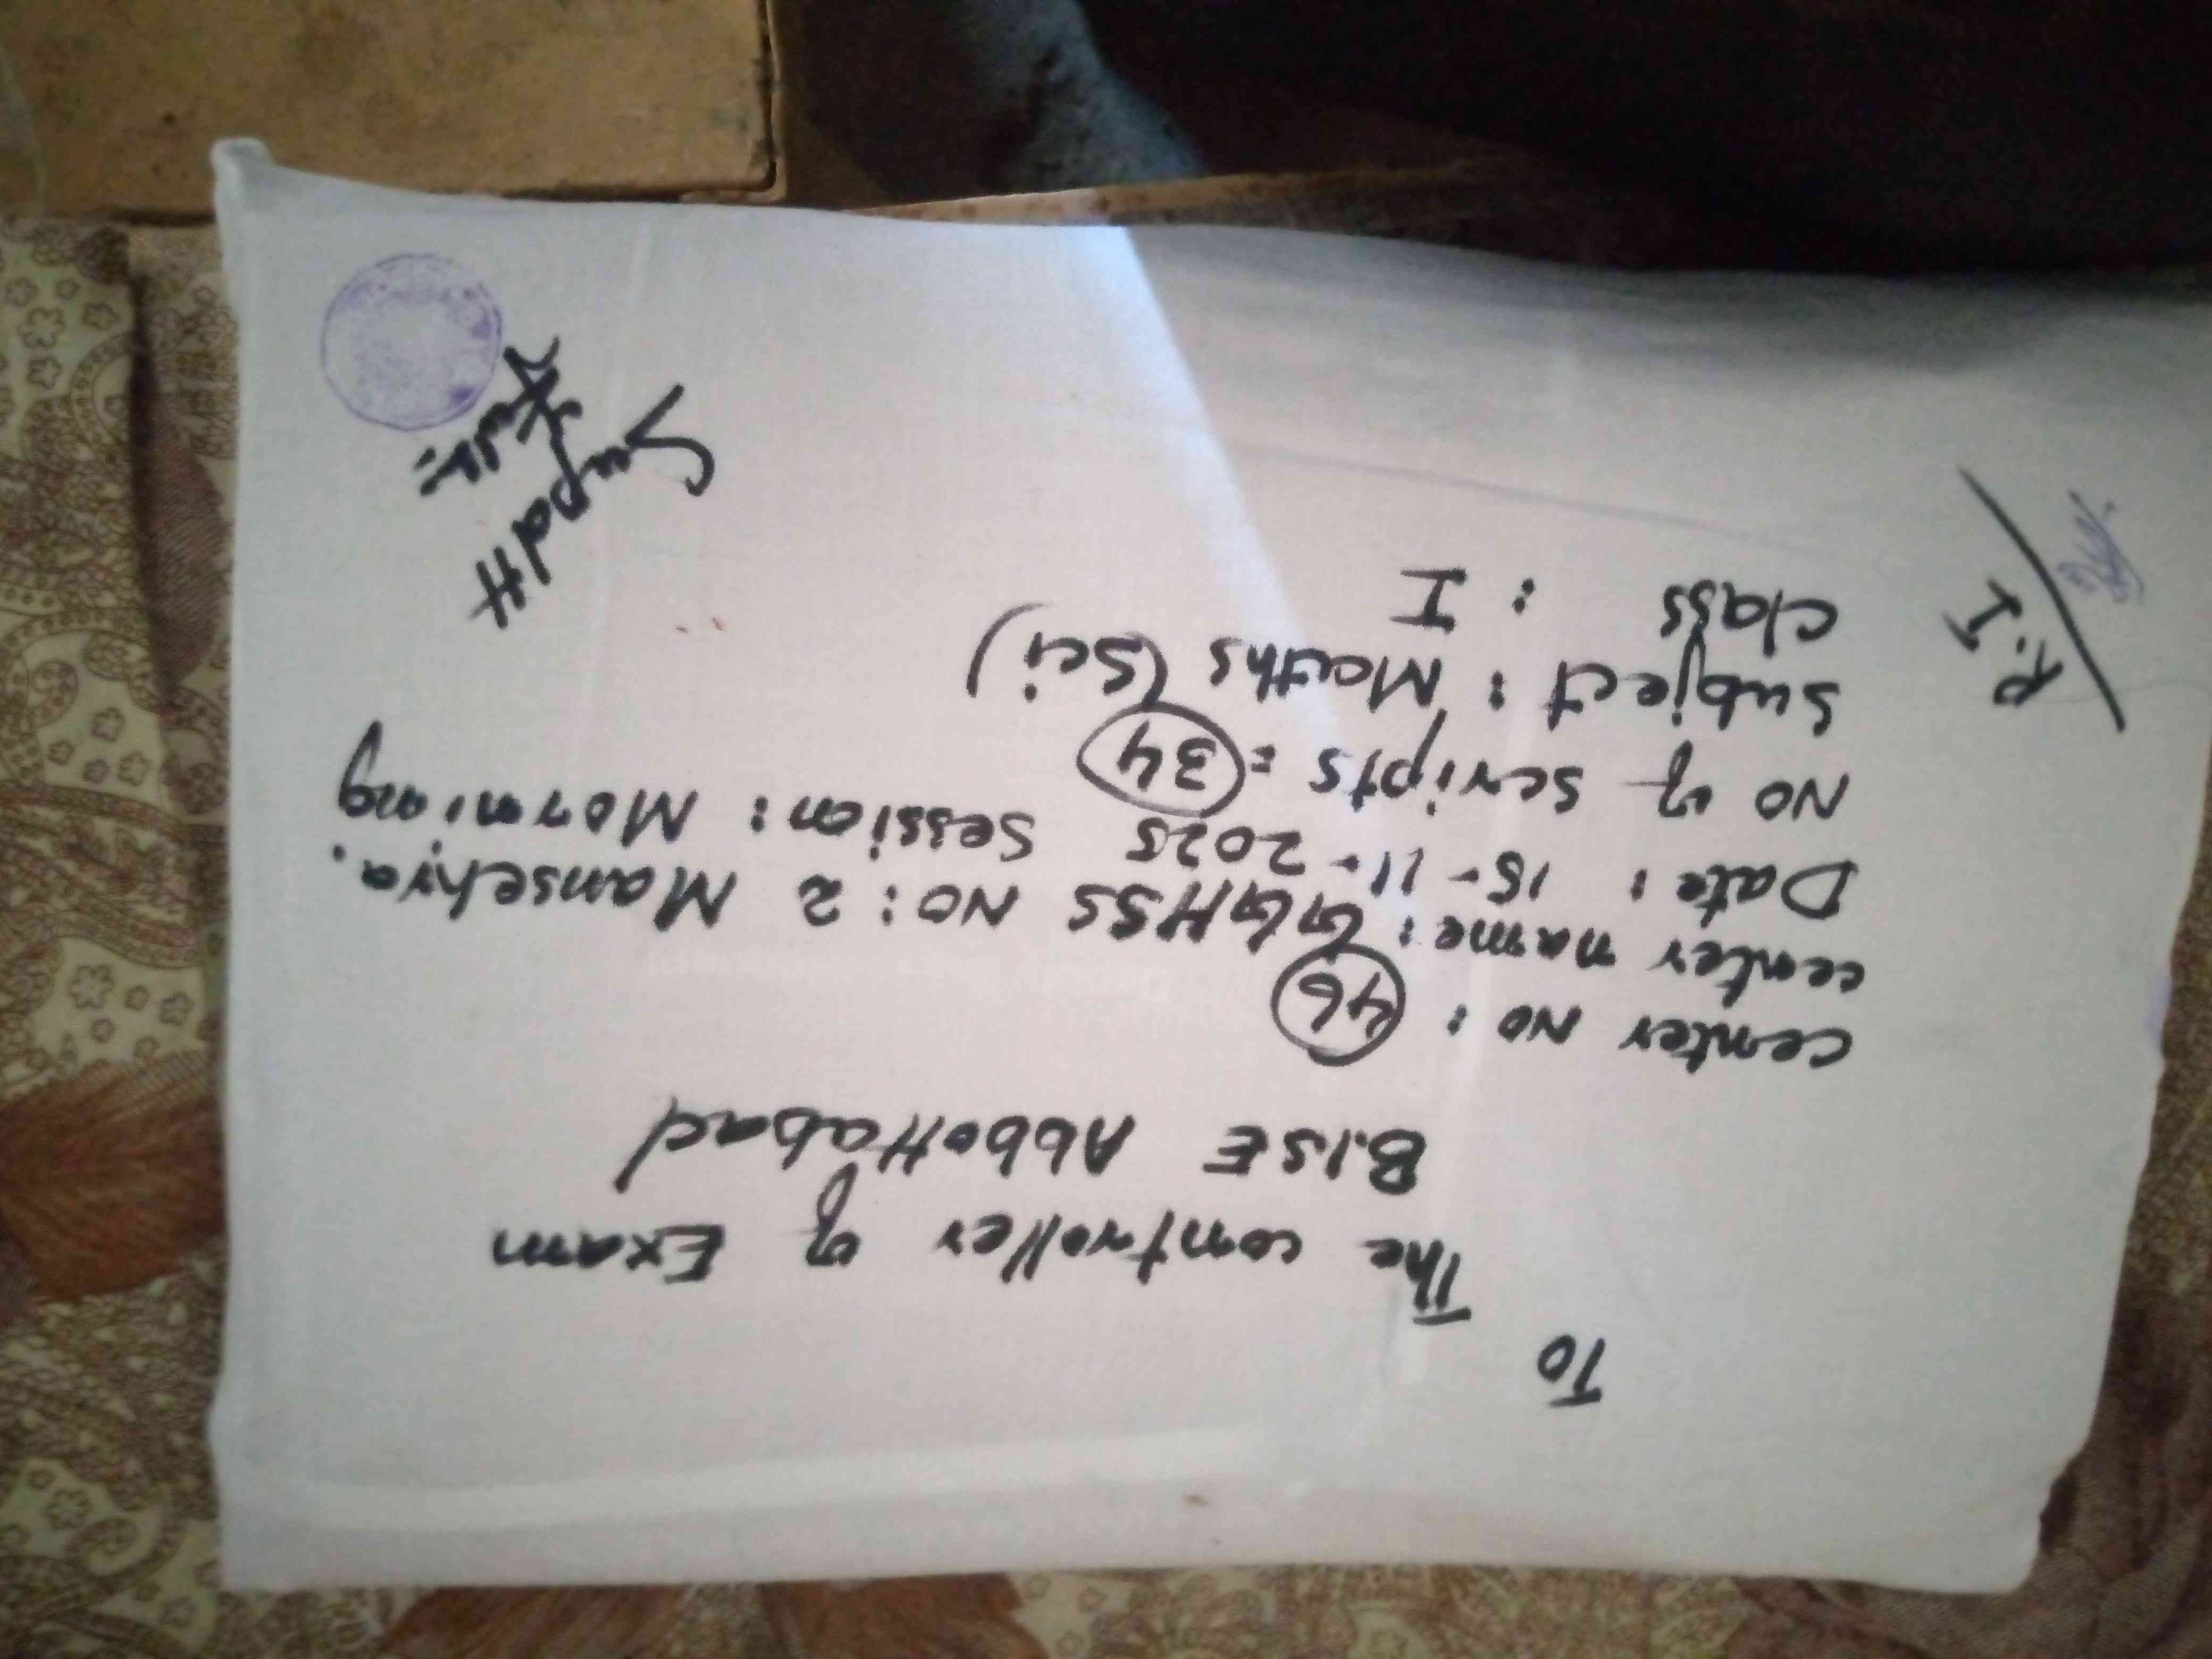 To
The controller of Exam
B.ISE Abbottabad
center NO: 46
center name: GGHSS NO: 2 Mansehra.
Date: 15-11-2025 Session: Morning
NO of scripts = 34
Subject: Maths (Sci)
class : I
P.I
Supdtt